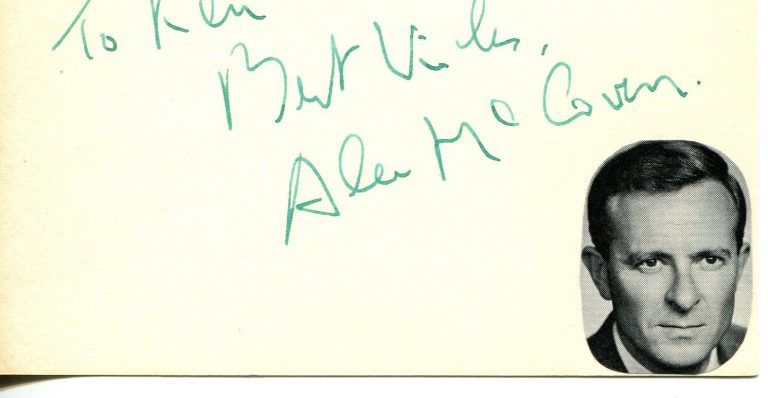 To Ken
Best Wishes,
Alec McCowen.